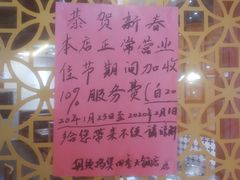 恭贺新春
本店正常营业
佳节期间加收
10%服务费(自20
20年1月23日至2020年2月1号
给您带来不便请谅解